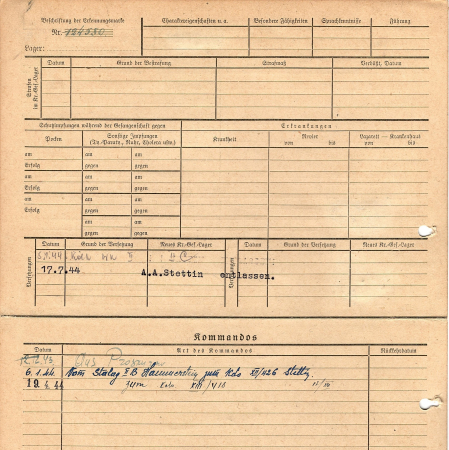 Beschriftung der Erkennungsmarke
Nr. 124580
Lager:
Charaktereigenschaften u. a.
Besondere Fähigkeiten
Sprachkenntnisse
Führung
Strafen
in Kr.-Gef.-Lager
Datum
Grund der Bestrafung
Strafmaß
Verbüßt, Datum
Schutzimpfungen während der Gefangenschaft gegen
Erkrankungen
Pocken
Sonstige Impfungen
(Ty-Paraty., Ruhr, Cholera usw.)
Krankheit
Revier
von bis
Lazarett — Krankenhaus
von bis
am am am
Erfolg gegen gegen
am am am
Erfolg gegen gegen
am am am
Erfolg gegen gegen
am am
gegen gegen
Versetzungen
Datum
Grund der Versetzung
Neues Kr.-Gef.-Lager
Versetzungen
Datum
Grund der Versetzung
Neues Kr.-Gef.-Lager
17.7.44. A.A.Stettin entlassen.
Kommandos
Datum
Art des Kommandos
Rückkehrdatum
6.1.44. Vom Stalag II B Hammerstein zum Kdo
19.4.44 zum Kdo XIII/410